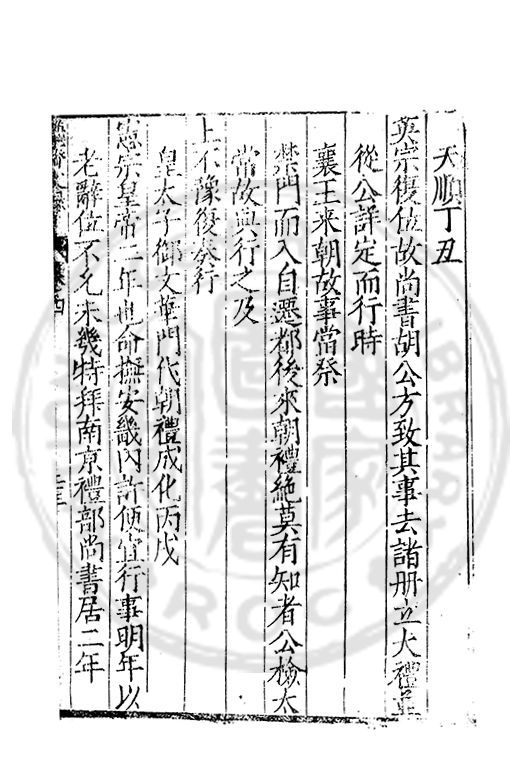 天順丁丑
英宗復位故尚書胡公方致其事去諸册立大禮皆
從公詳定而行時
襄王来朝故事當祭
禁門而入自遷都後來朝禮絶莫有知者公檢太
常故典行之及
上不豫復奏行
皇太子御文華門代朝禮成化丙戌
憲宗皇帝二年也命撫安畿内許便宜行事明年以
老辭位不允未幾特拜南京禮部尚書居二年